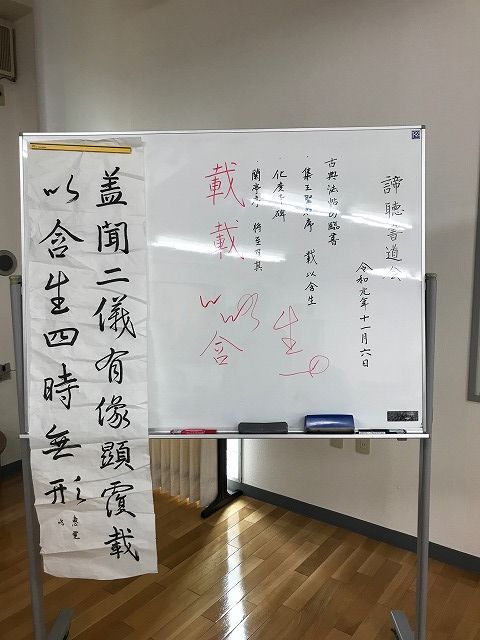 諦聴書道会
令和元年十一月六日
古典法帖の臨書
・集王聖教序 載以含生
・化度寺碑
・蘭亭序
載載
以以含
生
蓋聞二儀有像顕覆載
以含生四時無形